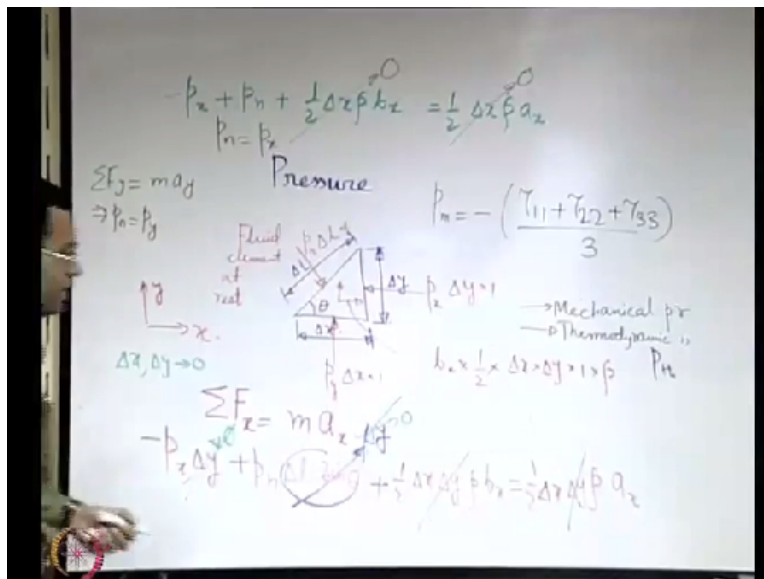 -p_x + p_n + 1/2 Δx ρ b_x = 1/2 Δx ρ a_x
0
0
p_n = p_x
Pressure
ΣF_y = m a_y
⇒ p_n = p_y
p_m = - (τ_11 + τ_22 + τ_33) / 3
Fluid element at rest
p_n Δl × 1
Δl
θ
Δx
Δy
p_x Δy × 1
p_y Δx × 1
y
x
Δx, Δy → 0
→ Mechanical pr
→ Thermodynamic
b_x × 1/2 × Δx × Δy × 1 × ρ
ΣF_x = m a_x
Δy
0
-p_x Δy + p_n + 1/2 Δx Δy ρ b_x = 1/2 Δx Δy ρ a_x